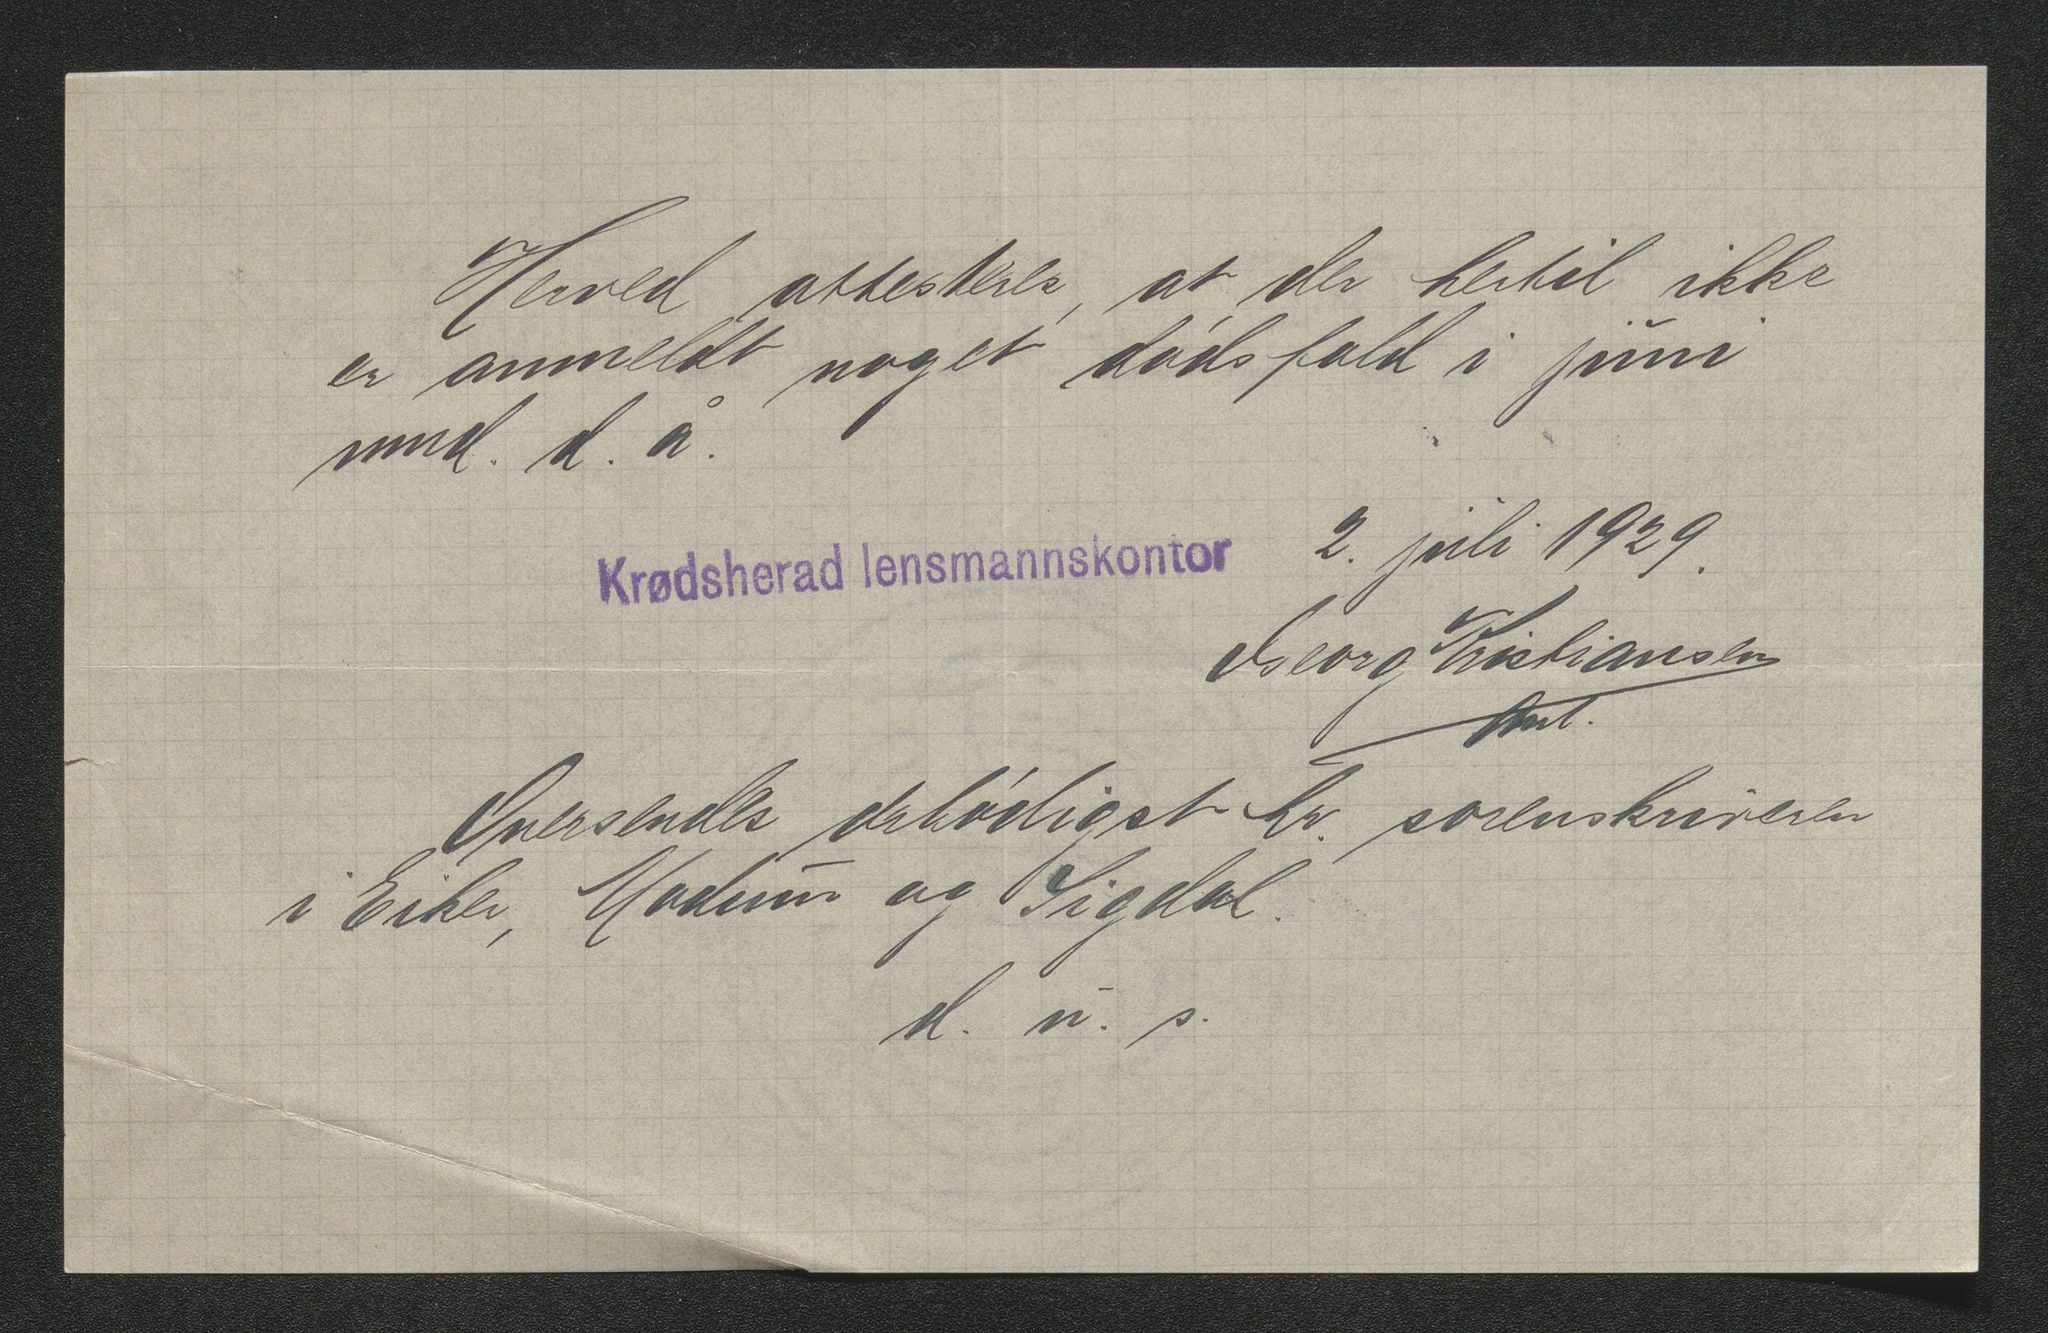 Herved attesteres, at der hertil ikke
er anmeldt noget dødsfald i juni
mnd. d. å.
Krødsherad lensmannskontor 2. juli 1929.
Georg Kristiansen
Oversendes ærbødigst hr. sorenskriveren
i Eiker, Modum og Sigdal.
d. u. s.